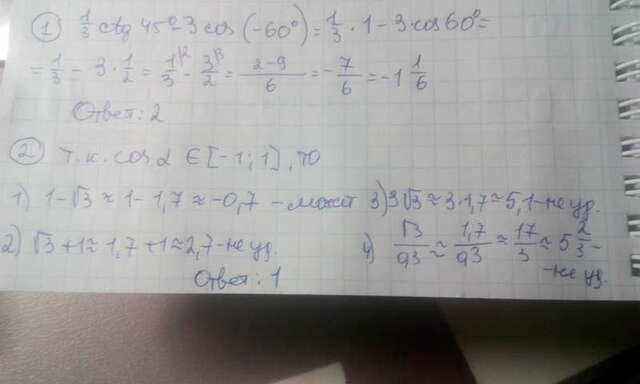 ① 1/3 ctg 45° - 3 cos (-60°) = 1/3 · 1 - 3 · cos 60° =
= 1/3 - 3 · 1/2 = 1/3 - 3/2 = (2-9)/6 = -7/6 = -1 1/6
Ответ: 2
② т.к. cos α ∈ [-1; 1], то
1) 1-√3 ≈ 1-1,7 ≈ -0,7 - может 3) 3√3 ≈ 3·1,7 ≈ 5,1 - не уд.
2) √3+1 ≈ 1,7+1 ≈ 2,7 - не уд. 4) √3/0,3 ≈ 1,7/0,3 ≈ 17/3 ≈ 5 2/3 -
- не уд.
Ответ: 1